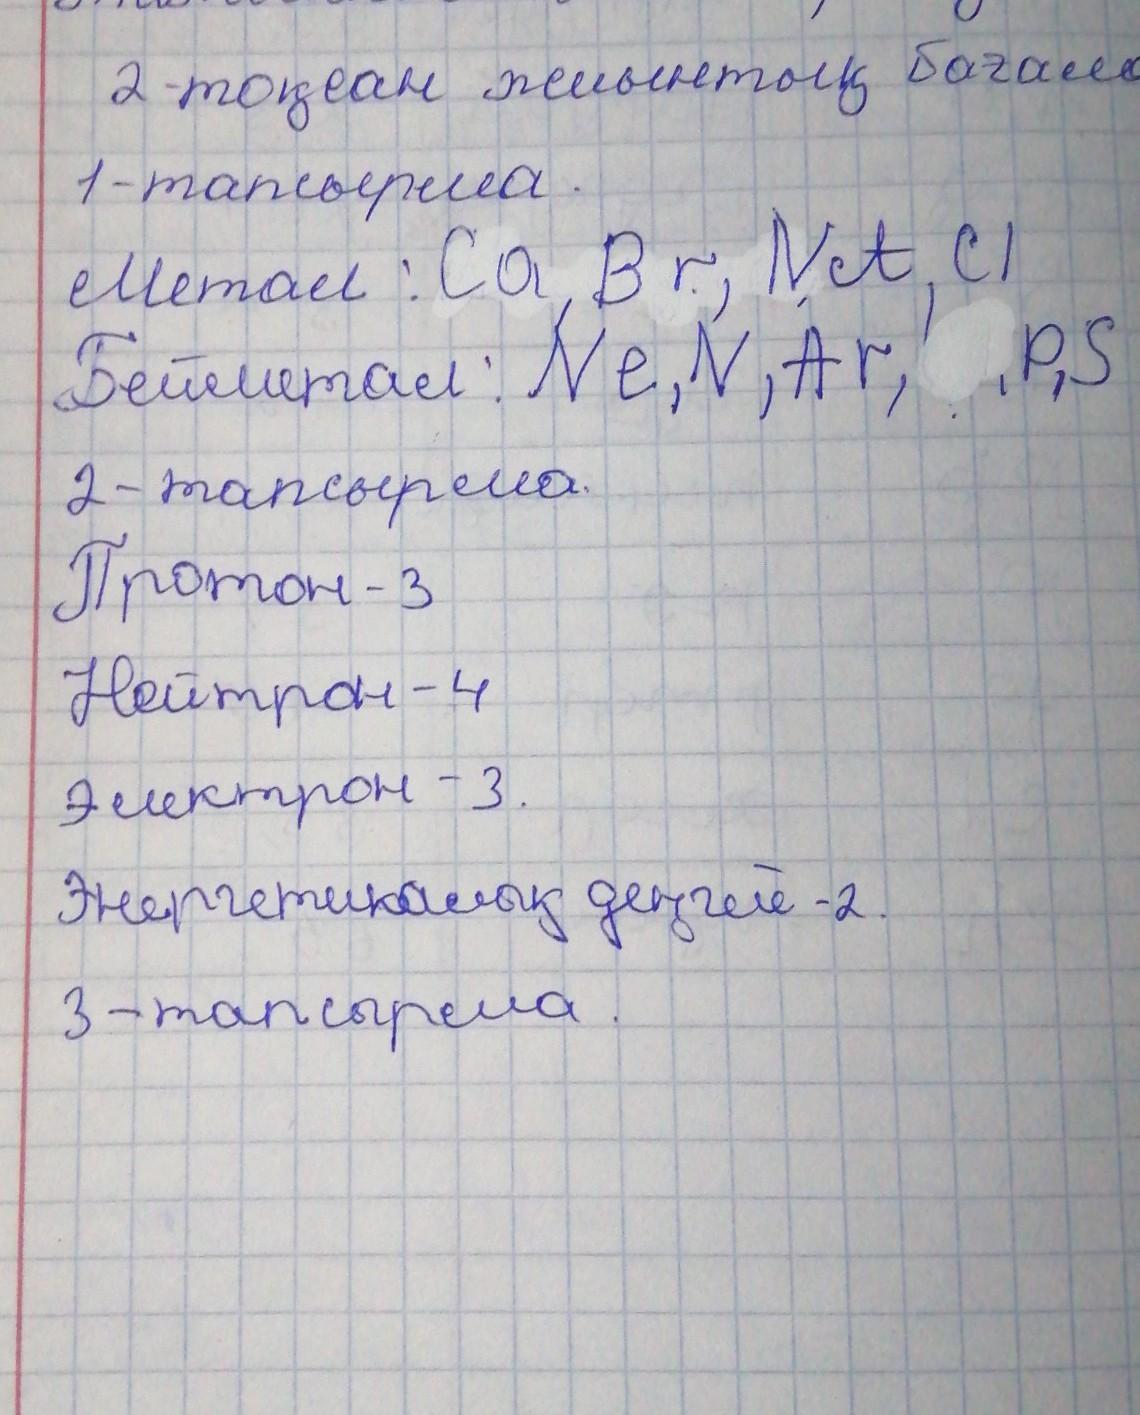 2-тоқсан жиынтық бағала
1-тапсырма.
Метал: Ca, Br, Na, Cl
Бейметал: Ne, N, Ar, P, S
2-тапсырма.
Протон-3
Нейтрон-4
Электрон-3.
Энергетикалық деңгей-2.
3-тапсырма.